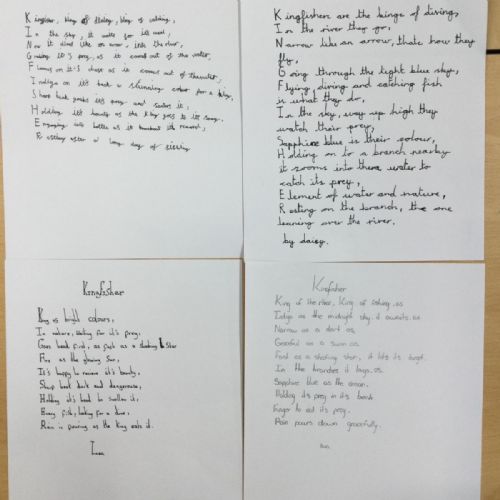 Kingfisher, King of
In the sky, it waits for its
Now it dives like an arrow, into the river,
it's prey, as it comes out of the water,
Focus on it's as it comes out of the water,
Indigo on it's back a colour for a King,
Sharp beak it's prey and it,
Holding it's as the King goes to its
Engaging into battle as it
Resting after a long day of
Kingfishers are the kings of diving,
In the river they go,
Narrow like an arrow, thats how they
fly,
Going through the light blue sky,
Flying, diving and catching fish
is what they do,
In the sky, way up high they
watch their prey,
Sapphire blue is their colour,
Holding on to a branch nearby
it zooms into there water to
catch its prey,
Element of water and nature,
Resting on the branch, the one
leaning over the river.
by daisy.
Kingfisher
King of bright colours,
In nature, waiting for it's prey,
Goes head first, as fast as a shooting star
Fire as the glowing Sun,
It's happy to receive it's bounty,
Sharp beak and dangerous,
Holding it's head to swallow it,
Every fish, looking for a
Rain is pouring as the King eats it.
Kingfisher
King of the river, King of fishing,
Indigo as the midnight sky, it awaits.
Narrow as a dart
Graceful as a swan
Fast as a shooting star, it hits its target.
In the branches it lays.
Sapphire blue as the ocean.
Holding its prey in its beak
Eager to eat its prey.
Rain pours down gracefully.